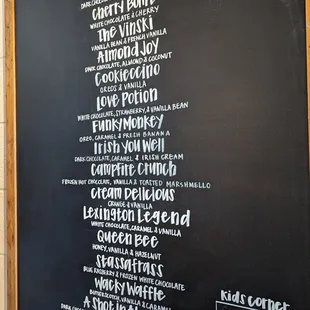 DARK CHOCOLATE
Cherry Bomb
WHITE CHOCOLATE & CHERRY
The Vinski
VANILLA BEAN & FRENCH VANILLA
Almond Joy
DARK CHOCOLATE, ALMOND & COCONUT
Cookieccino
OREOS & VANILLA
Love Potion
WHITE CHOCOLATE, STRAWBERRY, & VANILLA BEAN
Funky Monkey
OREO, CARAMEL & FRESH BANANA
Irish you Well
DARK CHOCOLATE, CARAMEL & IRISH CREAM
Campfire Crunch
FROZEN HOT CHOCOLATE, VANILLA & TOASTED MARSHMELLO
Cream Delicious
ORANGE & VANILLA
Lexington Legend
WHITE CHOCOLATE, CARAMEL & VANILLA
Queen Bee
HONEY, VANILLA & HAZELNUT
Sassafrass
BLUE RASPBERRY & FROZEN WHITE CHOCOLATE
Wacky Waffle
BUTTERSCOTCH, VANILLA & CARAMEL
A Shot In
DARK
Kids Corner